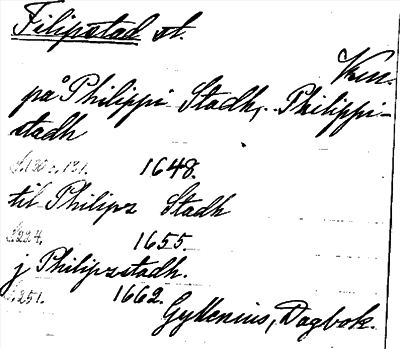 Filipstad st.
Vrm.
på Philippi Stadh, Philippi-
stadh
S. 130 o. 131. 1648.
til Philipz Stadh
S. 224. 1655.
j Philipzstadh.
S. 251. 1662.
Gyllenius, Dagbok.